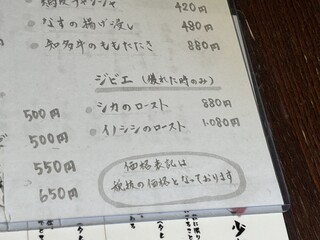 420円
なすの揚げ浸し 480円
知多牛のももたたき 880円
ジビエ (獲れた時のみ)
シカのロースト 880円
イノシシのロースト 1,080円
500円
500円
550円
650円
価格表記は
税抜の価格となっております
少